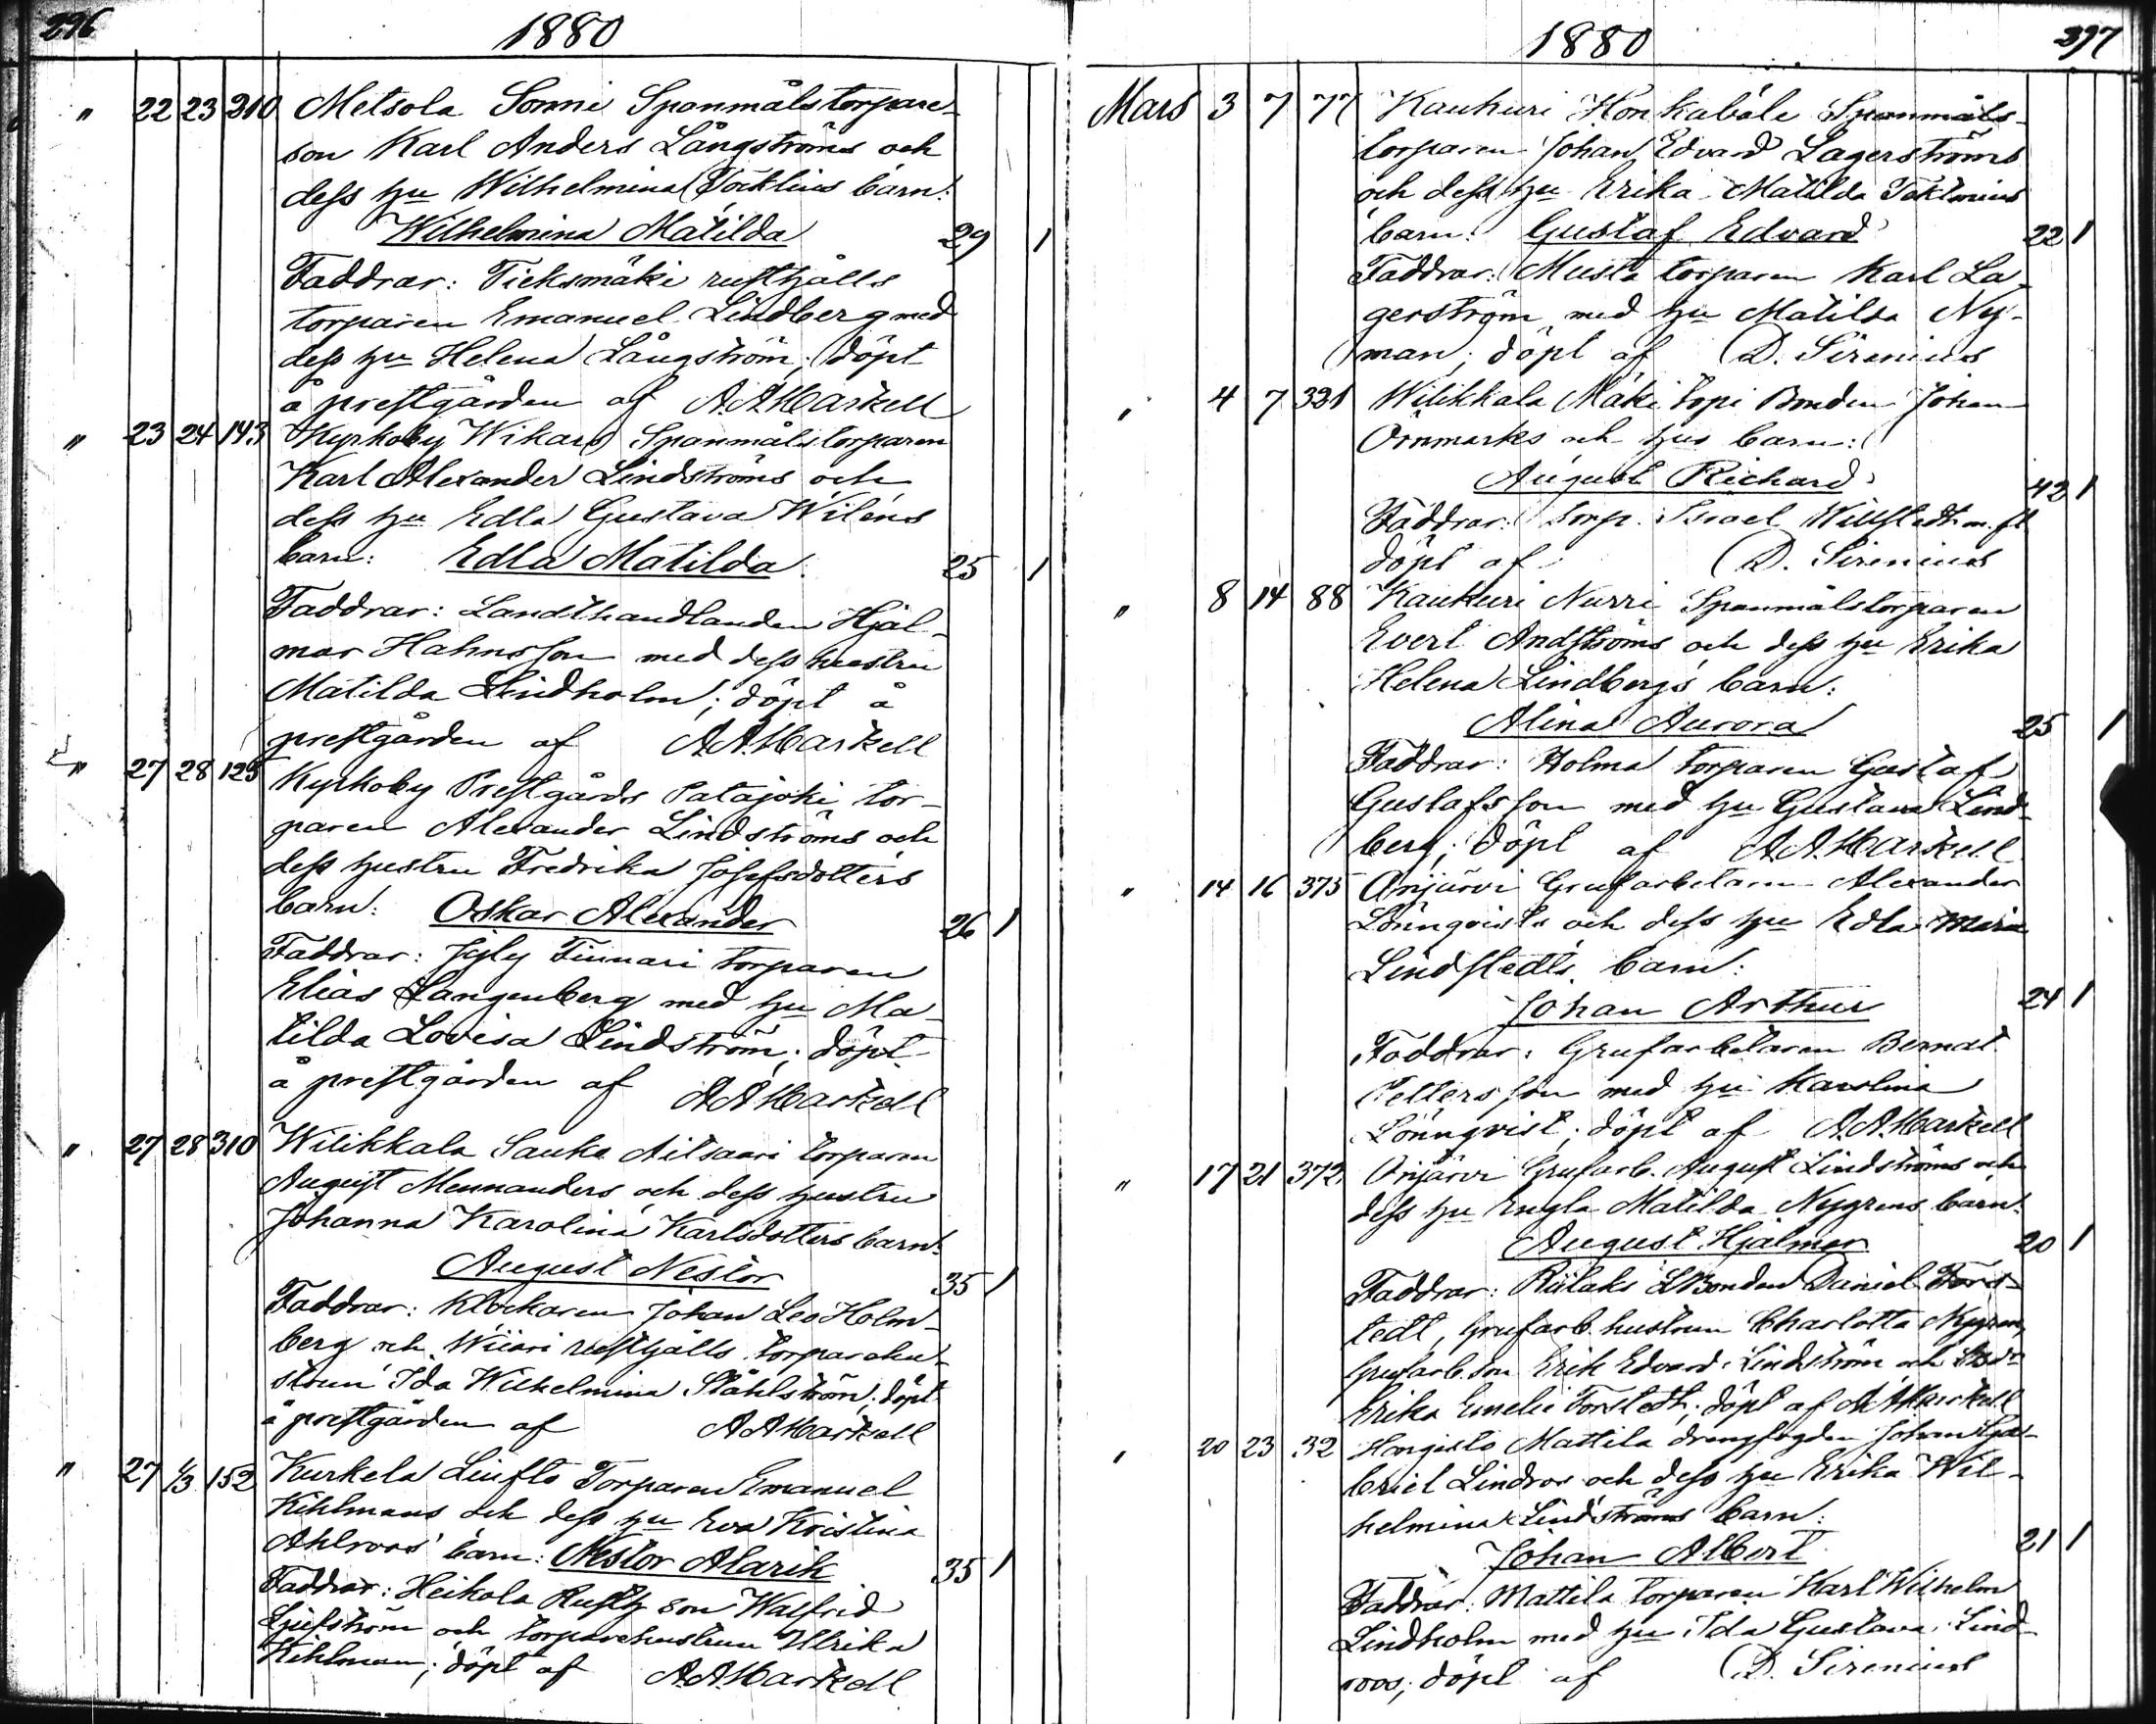 296
1880
" 22 23 310 Metsola Sonni Spanmålstorpare-
son Karl Anders Långströms och
dess hu Wilhelmina Töcklins barn:
Wilhelmina Matilda 29 1
Faddrar: Tieksmäki rusthålls
torparen Emanuel Lindberg med
dess hu Helena Långström; döpt
å prestgården af A. A. Markell
" 23 24 143 Kyrkoby Wikars Spanmålstorparen
Karl Alexander Lindströms och
dess hu Edla Gustava Wiléns
barn: Edla Matilda. 25 1
Faddrar: Landthandlanden Hjal-
mar Hahnsson med dess hustru
Matilda Lindholm; döpt å
prestgården af A. A. Markell
" 27 28 125 Kyrkoby Prestgårds Patajoki tor-
paren Alexander Lindströms och
dess hustru Fredrika Josefsdotters
barn: Oskar Alexander 26 1
Faddrar: Jyly Finnari torparen
Elias Langenberg med hu Ma-
tilda Lovisa Lindström; döpt
å prestgården af A. A. Markell
" 27 28 310 Wilikkala Sauka Aitsaari torparen
August Mennanders och dess hustru
Johanna Karolina Karlsdotters barn:
August Nestor 35 1
Faddrar: Klockaren Johan Leo Holm-
berg och Wiiari rusthålls torparehu-
strun Ida Wilhelmina Ståhlström; döpt
å prestgården af A. A. Markell
" 27 1/3 152 Kurkela Torparen Emanuel
Kihlmans och dess hu Eva Kristina
Ahlroos' barn: Nestor Alarik 35 1
Faddrar: Heikola Rusth son Walfrid
och torparehustrun Ulrika
Kihlman; döpt af A. A. Markell
297
1880
Mars 3 7 77 Kaukuri Honkabäle Spanmåls-
torparen Johan Edvard Lagerströms
och dess hu Erika Matilda
barn: Gustaf Edvard 22 1
Faddrar: Musta torparen Karl La-
gerström med hu Matilda Ny-
man; döpt af D. Sirenius
" 4 7 331 Wilikkala Mäki Topi Bonden Johan
Örnmarks och hus barn:
August Richard 42 1
Faddrar: torp. Israel Willstedt m. fl.
döpt af D. Sirenius
" 8 14 88 Kaukuri Nurri Spanmålstorparen
Evert Andströms och dess hu Erika
Helena Lindbergs barn:
Alina Aurora 25 1
Faddrar: Holma torparen Gustaf
Gustafsson med hu Gustava Lind-
berg; döpt af A. A. Markell
" 14 16 375 Orijärvi Grufarbetaren Alexander
Lönnqvists och dess hu Edla Maria
Lindstedts barn:
Johan Arthur 24 1
Faddrar: Grufarbetaren Bernat
Pettersson med hu Karolina
Lönnqvist; döpt af A. A. Markell
" 17 21 372 Orijärvi Grufarb. August Lindströms och
dess hu Engla Matilda Nygrens barn:
August Hjalmar 20 1
Faddrar: Riilaks Bonden Daniel Fors-
tedt, Grufarb. hustrun Charlotta Nygren,
Grufarb. son Erik Edvard Lindström och
Erika Emelie Forstedt; döpt af A. A. Markell
" 20 23 32 Hongisto Mattila drengfogden Johan Ga-
briel Lindros och dess hu Erika Wil-
helmina Lindströms barn:
Johan Albert 21 1
Faddrar: Mattila torparen Karl Wilhelm
Lindholm med hu Ida Gustava Lind-
roos; döpt af D. Sirenius